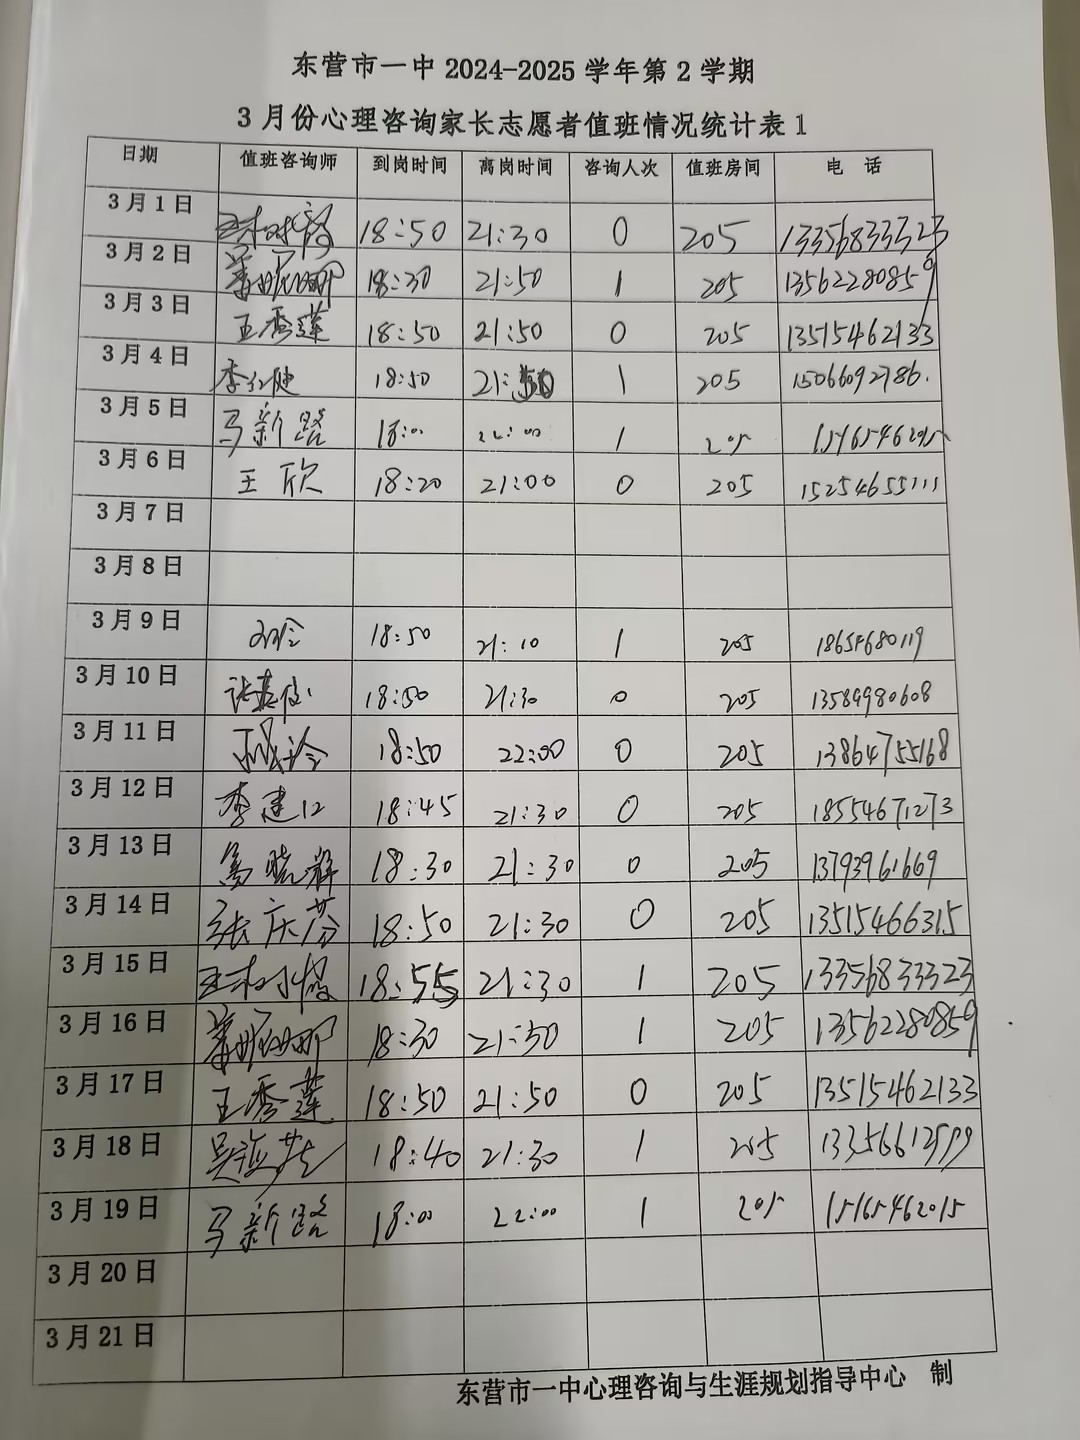 东营市一中 2024-2025 学年第 2 学期
3 月份心理咨询家长志愿者值班情况统计表 1
日期 值班咨询师 到岗时间 离岗时间 咨询人次 值班房间 电 话
3 月 1 日 18:50 21:30 0 205 13356833323
3 月 2 日 18:30 21:50 1 205 13562280859
3 月 3 日 王秀莲 18:50 21:50 0 205 13515462133
3 月 4 日 18:50 21:50 1 205 15066092786.
3 月 5 日 马新路 18:00 22:00 1 205
3 月 6 日 王欣 18:20 21:00 0 205 15254655111
3 月 7 日
3 月 8 日
3 月 9 日 18:50 21:10 1 205
3 月 10 日 18:50 21:30 0 205 13589980608
3 月 11 日 18:50 22:00 0 205 13864755168
3 月 12 日 18:45 21:30 0 205 18554671273
3 月 13 日 18:30 21:30 0 205 13793961669
3 月 14 日 张庆芬 18:50 21:30 0 205 13515466315
3 月 15 日 18:55 21:30 1 205 13356833323
3 月 16 日 18:30 21:50 1 205 13562280859
3 月 17 日 王秀莲 18:50 21:50 0 205 13515462133
3 月 18 日 18:40 21:30 1 205
3 月 19 日 马新路 18:00 22:00 1 205 15165462015
3 月 20 日
3 月 21 日
东营市一中心理咨询与生涯规划指导中心 制